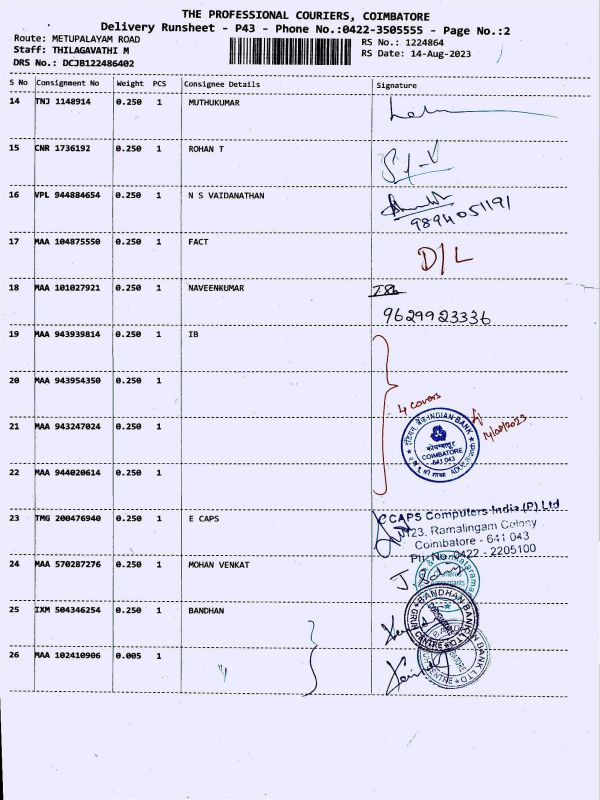 THE PROFESSIONAL COURIERS, COIMBATORE
Delivery Runsheet - P43 - Phone No.:0422-3505555 - Page No.:2
Route: METUPALAYAM ROAD RS No.: 1224864
Staff: THILAGAVATHI M RS Date: 14-Aug-2023
DRS No.: DCJB122486402
S No Consignment No Weight PCS Consignee Details Signature
14 TNJ 1148914 0.250 1 MUTHUKUMAR
15 CNR 1736192 0.250 1 ROHAN T
16 VPL 944884654 0.250 1 N S VAIDANATHAN
9894051191
17 MAA 104875550 0.250 1 FACT D/L
18 MAA 101027921 0.250 1 NAVEENKUMAR
9629923336
19 MAA 943939814 0.250 1 IB
20 MAA 943954350 0.250 1
4 covers
21 MAA 943247024 0.250 1
INDIAN BANK
कोयम्बत्तूर
COIMBATORE
641 043
22 MAA 944020614 0.250 1
23 TMG 200476940 0.250 1 E CAPS
CCAPS Computers India (P) Ltd
123, Ramalingam Colony
Coimbatore - 641 043
Ph: No. 0422 - 2205100
24 MAA 570287276 0.250 1 MOHAN VENKAT
25 IXM 504346254 0.250 1 BANDHAN
BANDHAN BANK LTD
26 MAA 102410906 0.005 1
BANK LTD